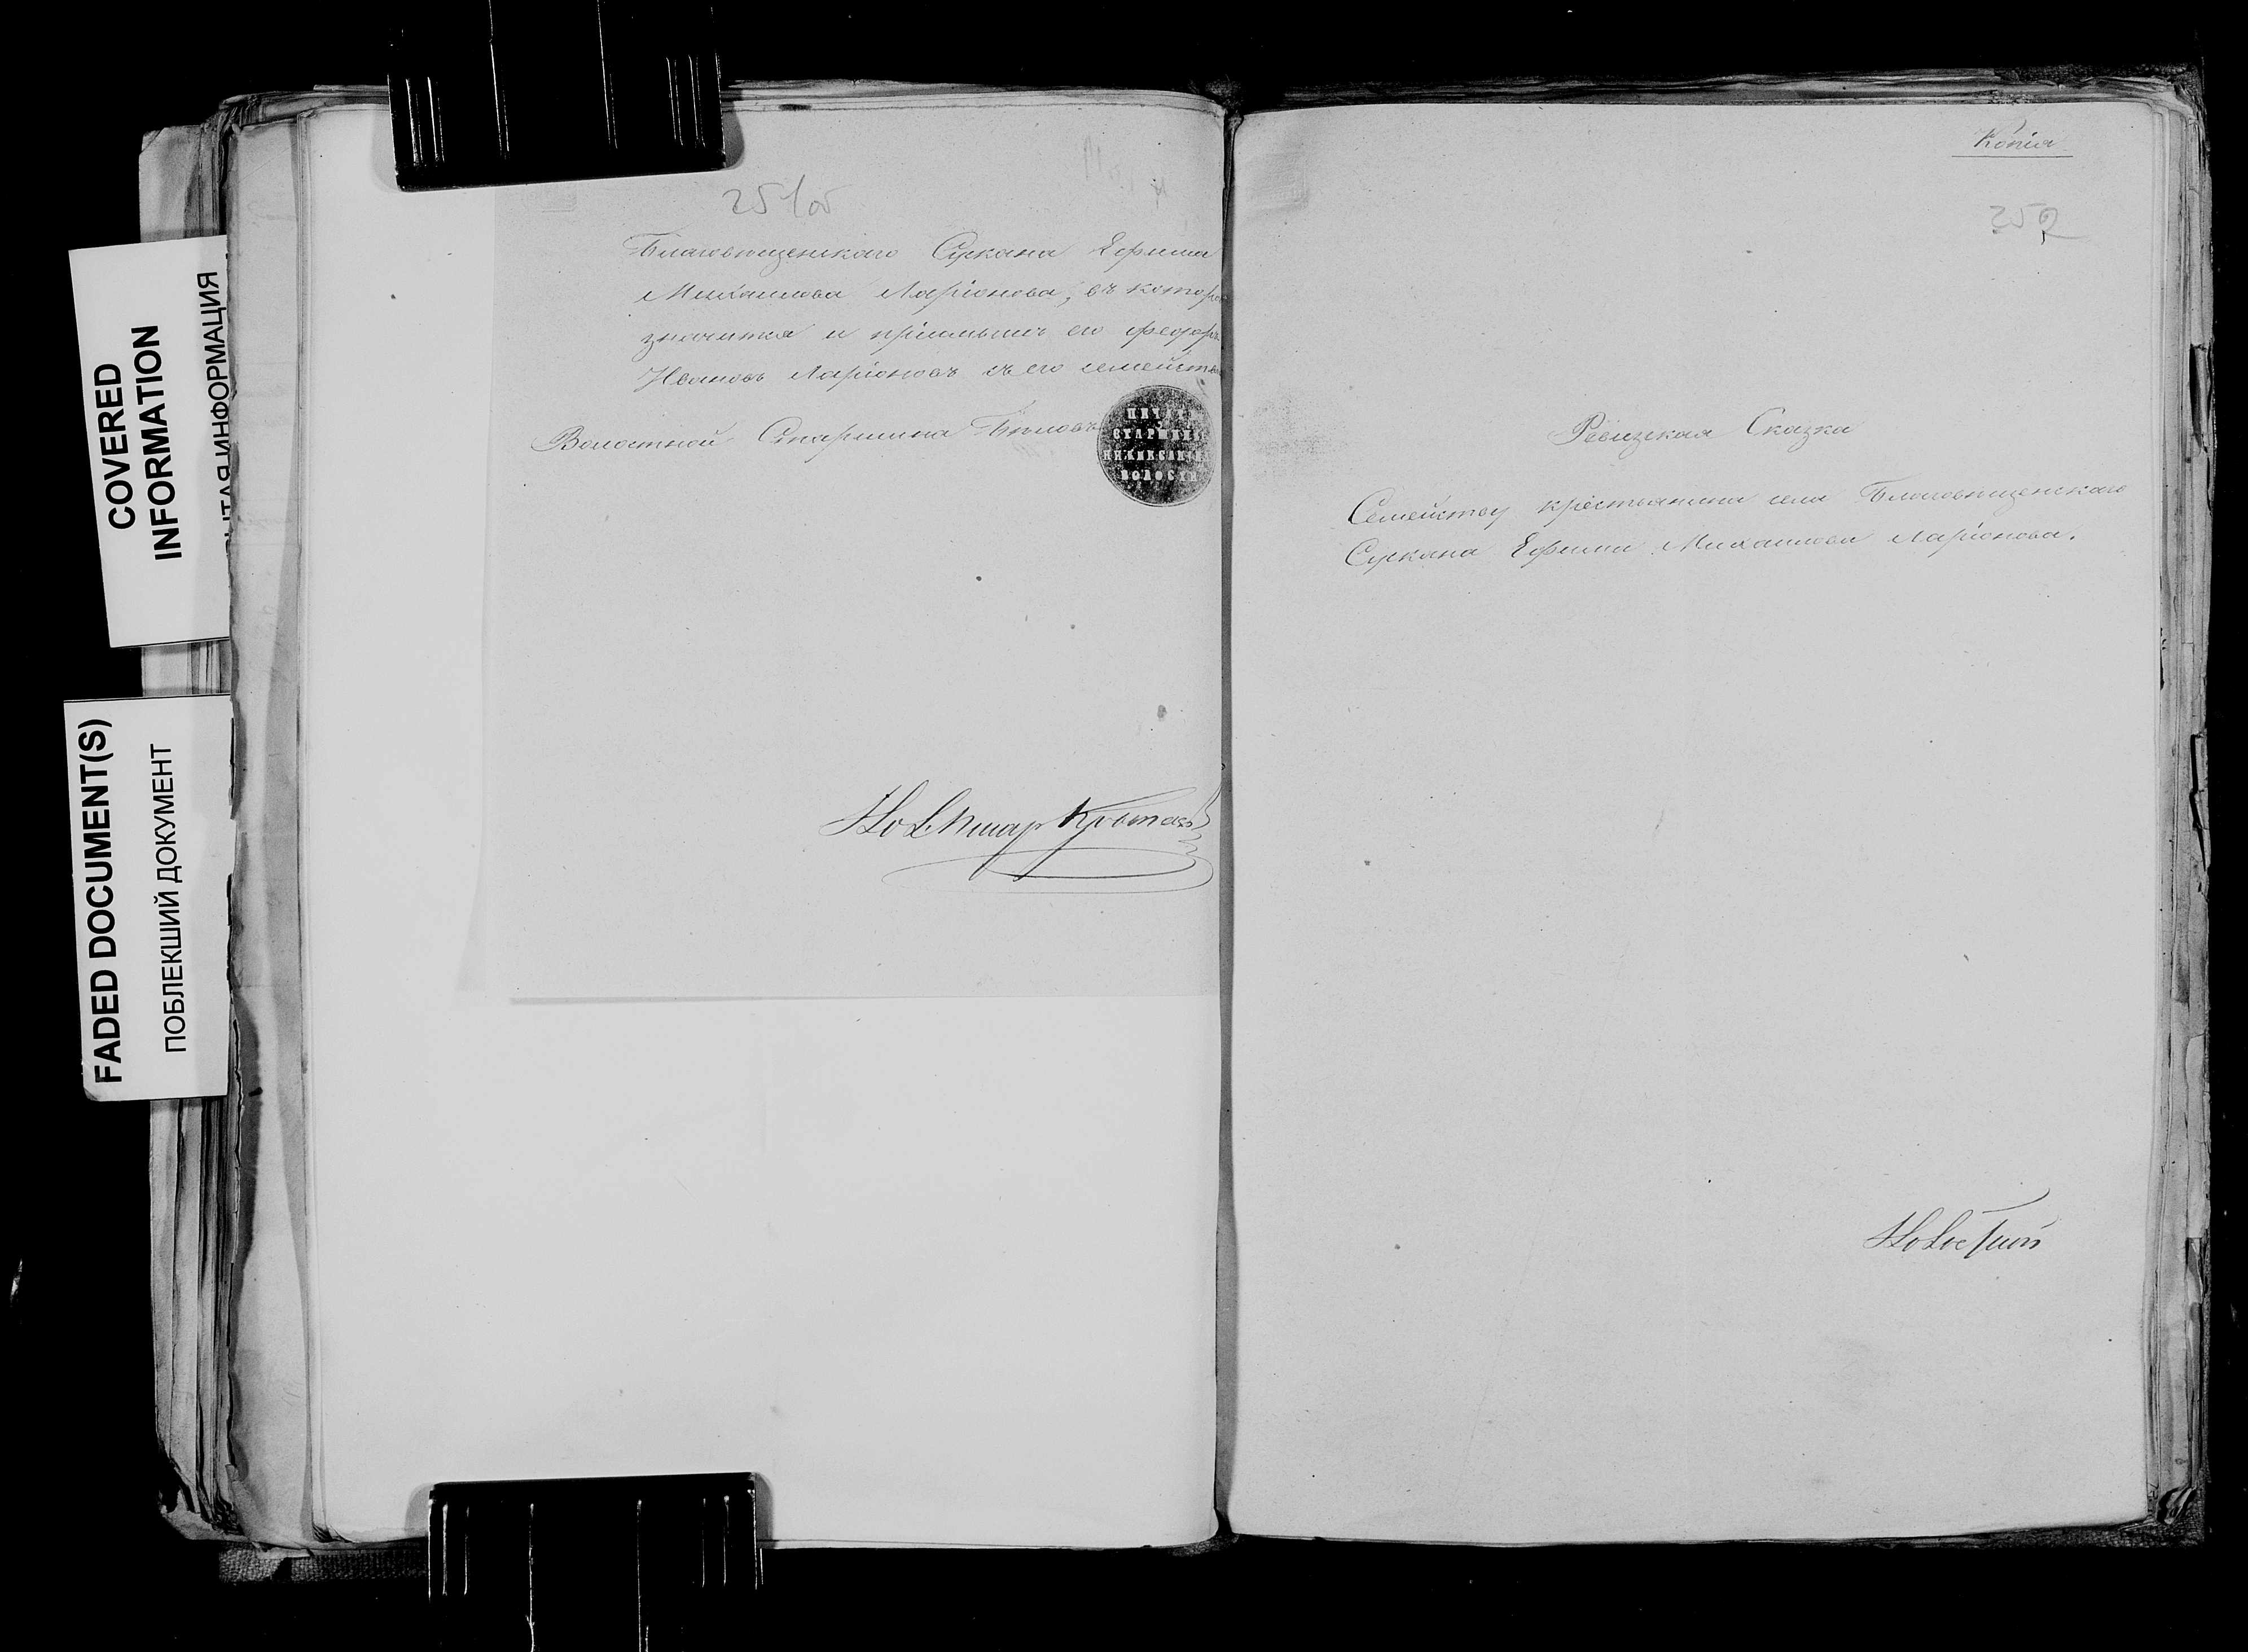 COVERED
INFORMATION
ИНФОРМАЦИЯ
FADED DOCUMENT(S)
ПОБЛЕКШИЙ ДОКУМЕНТ
251об
Благовѣщенскаго Суркана Ефима
Михаилова Ларіонова, въ котор
значится и пріемышъ его Федоръ
Ивановъ Ларіоновъ съ его семейств
Волостной Старшина Бѣловъ
ПЕЧАТЬ
СТАРШИНЫ
ВОЛОСТИ
Копія
252
Ревизская Сказка
Семейству крестьянина села Благовѣщенскаго
Суркана Ефима Михаилова Ларіонова.